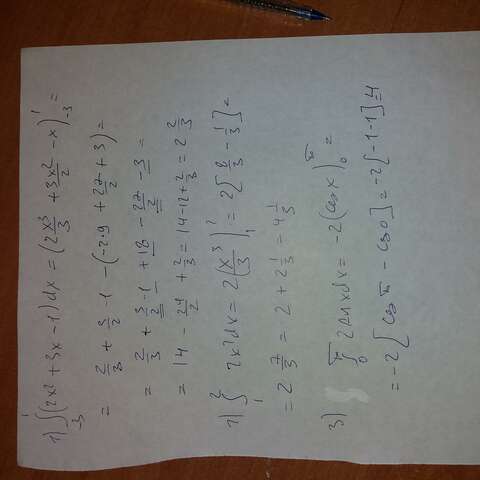 1) ∫₋₃¹ (2x² + 3x - 1) dx = (2x³/3 + 3x²/2 - x)₋₃¹ =
= 2/3 + 3/2 - 1 - (-2·9 + 27/2 + 3) =
= 2/3 + 3/2 - 1 + 18 - 27/2 - 3 =
= 14 - 24/2 + 2/3 = 14 - 12 + 2/3 = 2 2/3
2) ∫₁² 2x² dx = 2(x³/3)₁² = 2[8/3 - 1/3] =
= 2 7/3 = 2 + 2 1/3 = 4 1/3
3) ∫₀^π 2 sin x dx = -2 (cos x)₀^π =
= -2[cos π - cos 0] = -2[-1-1] = 4